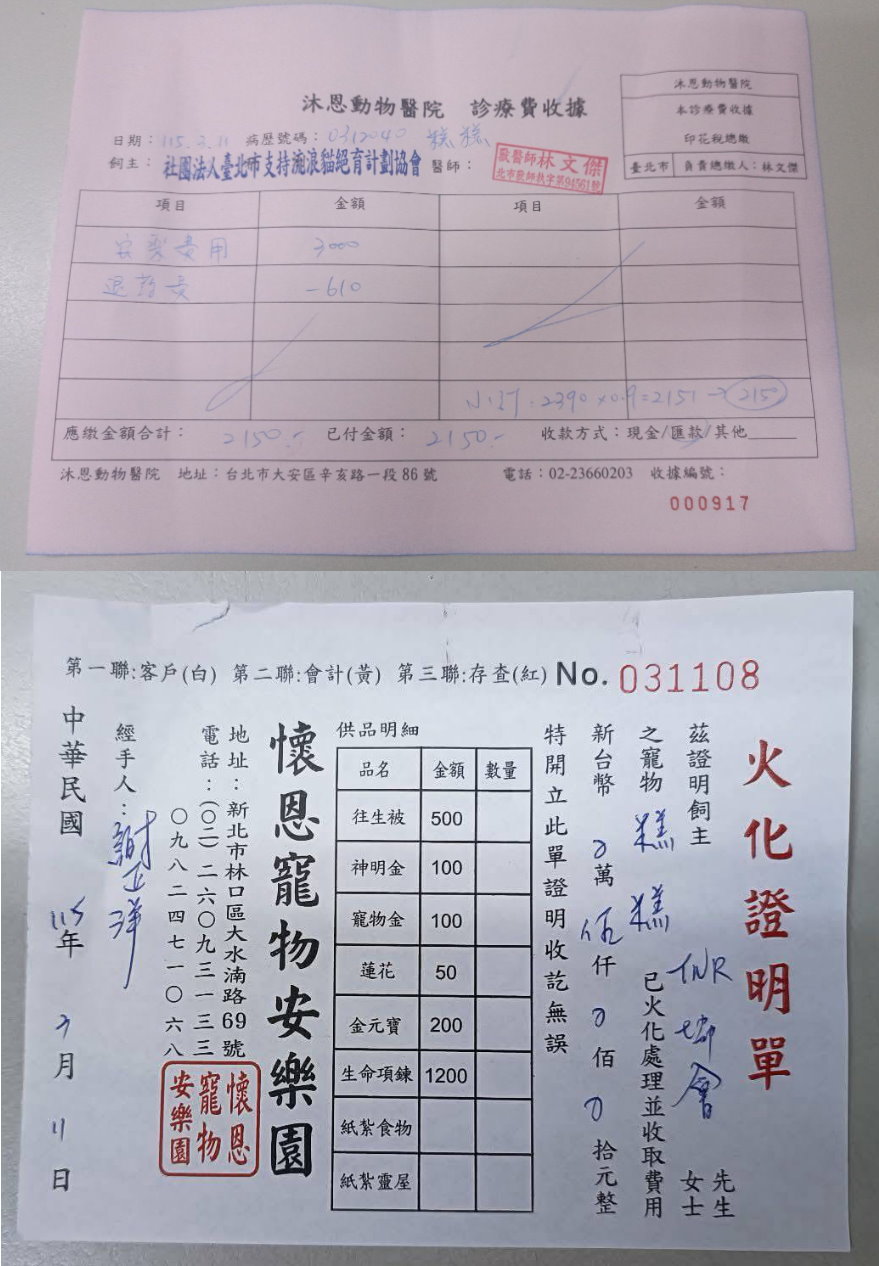 沐恩動物醫院 診療費收據
沐恩動物醫院
本診療費收據
印花稅總繳
臺北市 負責總繳人：林文傑
日期：115.3.11 病歷號碼：0312040 糕糕
飼主：社團法人臺北市支持流浪貓絕育計劃協會 醫師：
獸醫師林文傑
北市獸師執字第94561號
項目 金額 項目 金額
安樂費用 3000
退藥費 -610
小計：2390×0.9=2151→2150
應繳金額合計：2150.- 已付金額：2150.- 收款方式：現金/匯款/其他
沐恩動物醫院 地址：台北市大安區辛亥路一段86號 電話：02-23660203 收據編號：
000917
第一聯:客戶(白) 第二聯:會計(黃) 第三聯:存查(紅) No. 031108
火化證明單
茲證明飼主 TNR 協會 先生 女士
之寵物 糕糕 已火化處理並收取費用
新台幣 0萬 伍仟 0佰 0拾元整
特開立此單證明收訖無誤
供品明細
品名 金額 數量
往生被 500
神明金 100
寵物金 100
蓮花 50
金元寶 200
生命項鍊 1200
紙紮食物
紙紮靈屋
懷恩寵物安樂園
地址：新北市林口區大水湳路69號
電話：(〇二)二六〇九三一三三
〇九八二四七一〇六八
懷恩寵物安樂園
經手人：
中華民國 115年 3月 11日